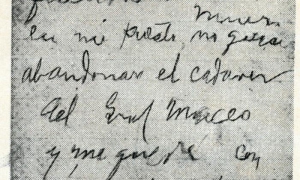 en mi puesto, no quise
abandonar el cadaver
del Gral Maceo
y me quedé con